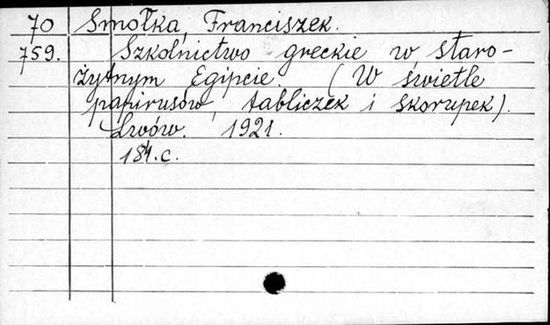 70 Smołka, Franciszek.
759. Szkolnictwo greckie w staro-
żytnym Egipcie. (W świetle
papirusów, tabliczek i skorupek).
Lwów. 1921.
184.c.